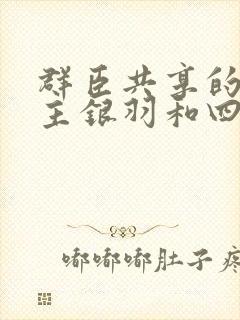 群臣共享的
主银羽和四
嘟嘟嘟肚子疼